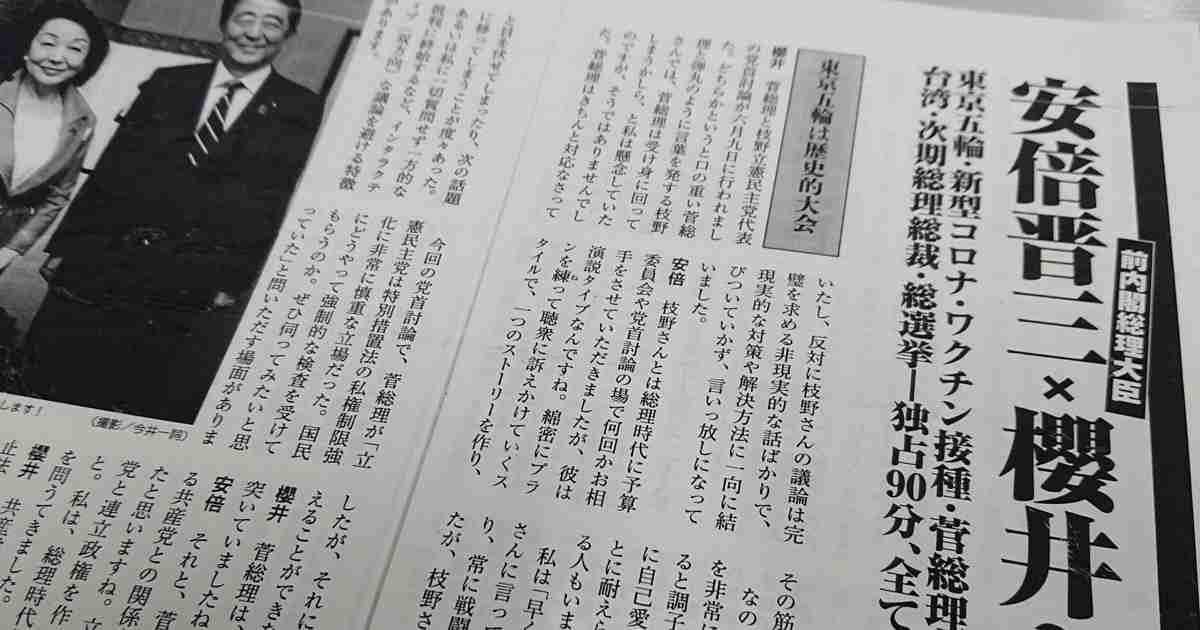 前内閣総理大臣
安倍晋三×櫻井
東京五輪・新型コロナ・ワクチン接種・菅総理
台湾・次期総理総裁・総選挙―独占90分、全て
東京五輪は歴史的大会
櫻井 菅総理と枝野立憲民主党代表
の党首討論が六月九日に行われまし
た。どちらかというと口の重い菅総
理と弾丸のように言葉を発する枝野
さんでは、菅総理は受け身に回って
しまうかしら、と私は懸念していた
のですが、そうではありませんでし
た。菅総理はきちんと対応なさって
いたし、反対に枝野さんの議論は完
璧を求める非現実的な話ばかりで、
現実的な対策や解決方法に一向に結
びついていかず、言いっ放しになって
いました。
安倍 枝野さんとは総理時代に予算
委員会や党首討論の場で何回かお相
手をさせていただきましたが、彼は
演説タイプなんですね。綿密にプラ
ンを練って聴衆に訴えかけていくス
タイルで、一つのストーリーを作り、
その筋
なの
を非常に
ると調子
に自己愛
とに耐えら
る人もいま
私は「早く
さんに言って
り、常に戦闘
たが、枝野さ
と目を伏せてしまったり、次の話題
に移ってしまうことが度々あった。
あるいは私に一切質問せず一方的な
批判に終始するなど、インタラクテ
ィブ(双方向)な議論を避ける特徴
があります。
今回の党首討論で、菅総理が「立
憲民主党は特別措置法の私権制限強
化に非常に慎重な立場だった。国民
にどうやって強制的な検査を受けて
もらうのか。ぜひ伺ってみたいと思
っていた」と問いただす場面がありま
したが、それに
えることができな
櫻井 菅総理は、
突いていましたね
安倍 それと、菅
る共産党との関係
たと思いますね。立
党と連立政権を作
と。私は、総理時代
を問うてきました。
櫻井 共産
止法
します!
(撮影/今井一詞)